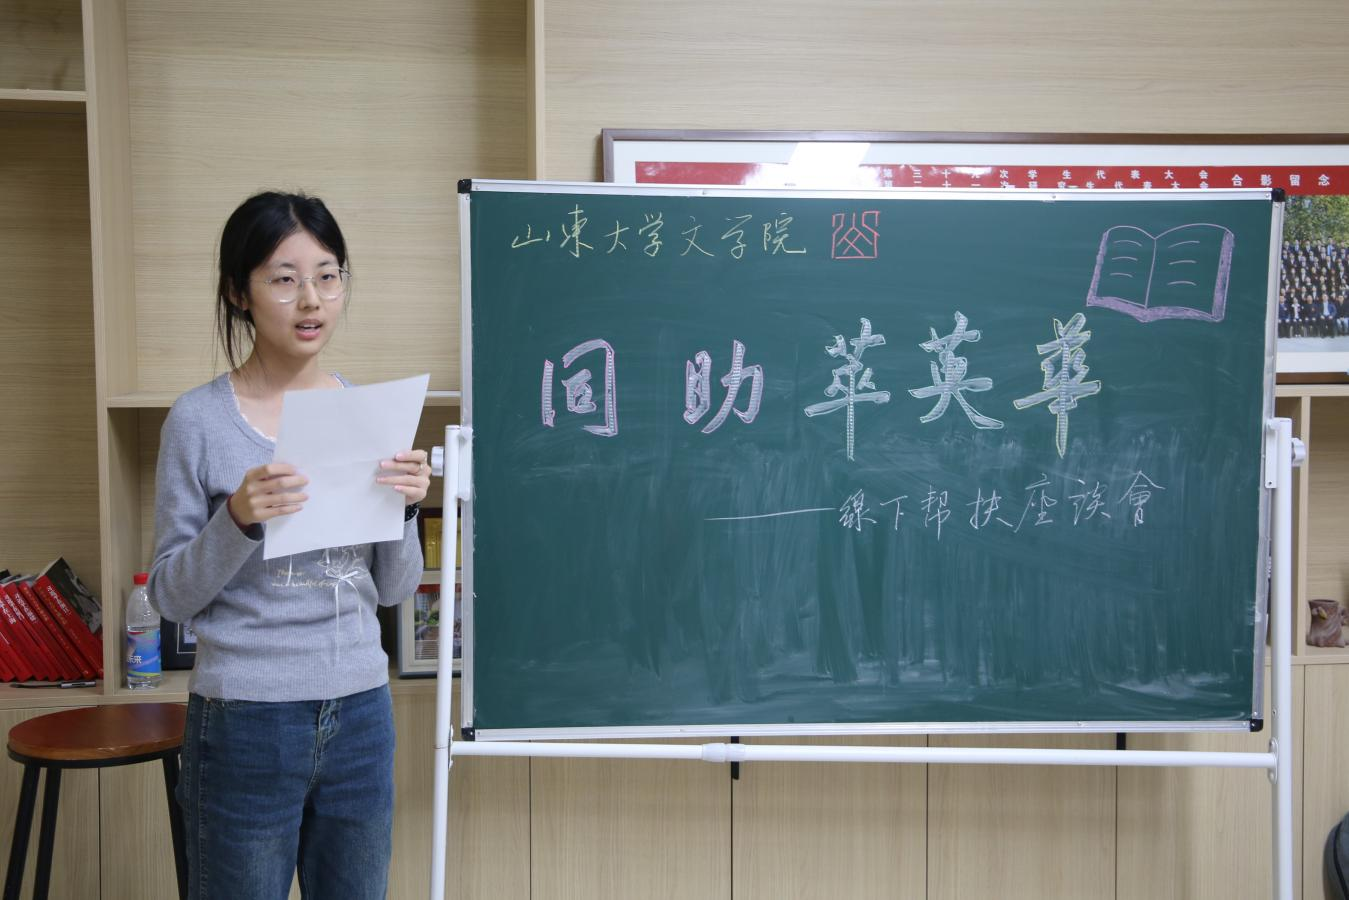 第三十九次学生代表大会
第二十一次研究生代表大会 合影留念
山東大学文学院
同助萃英華
——線下帮扶座谈會